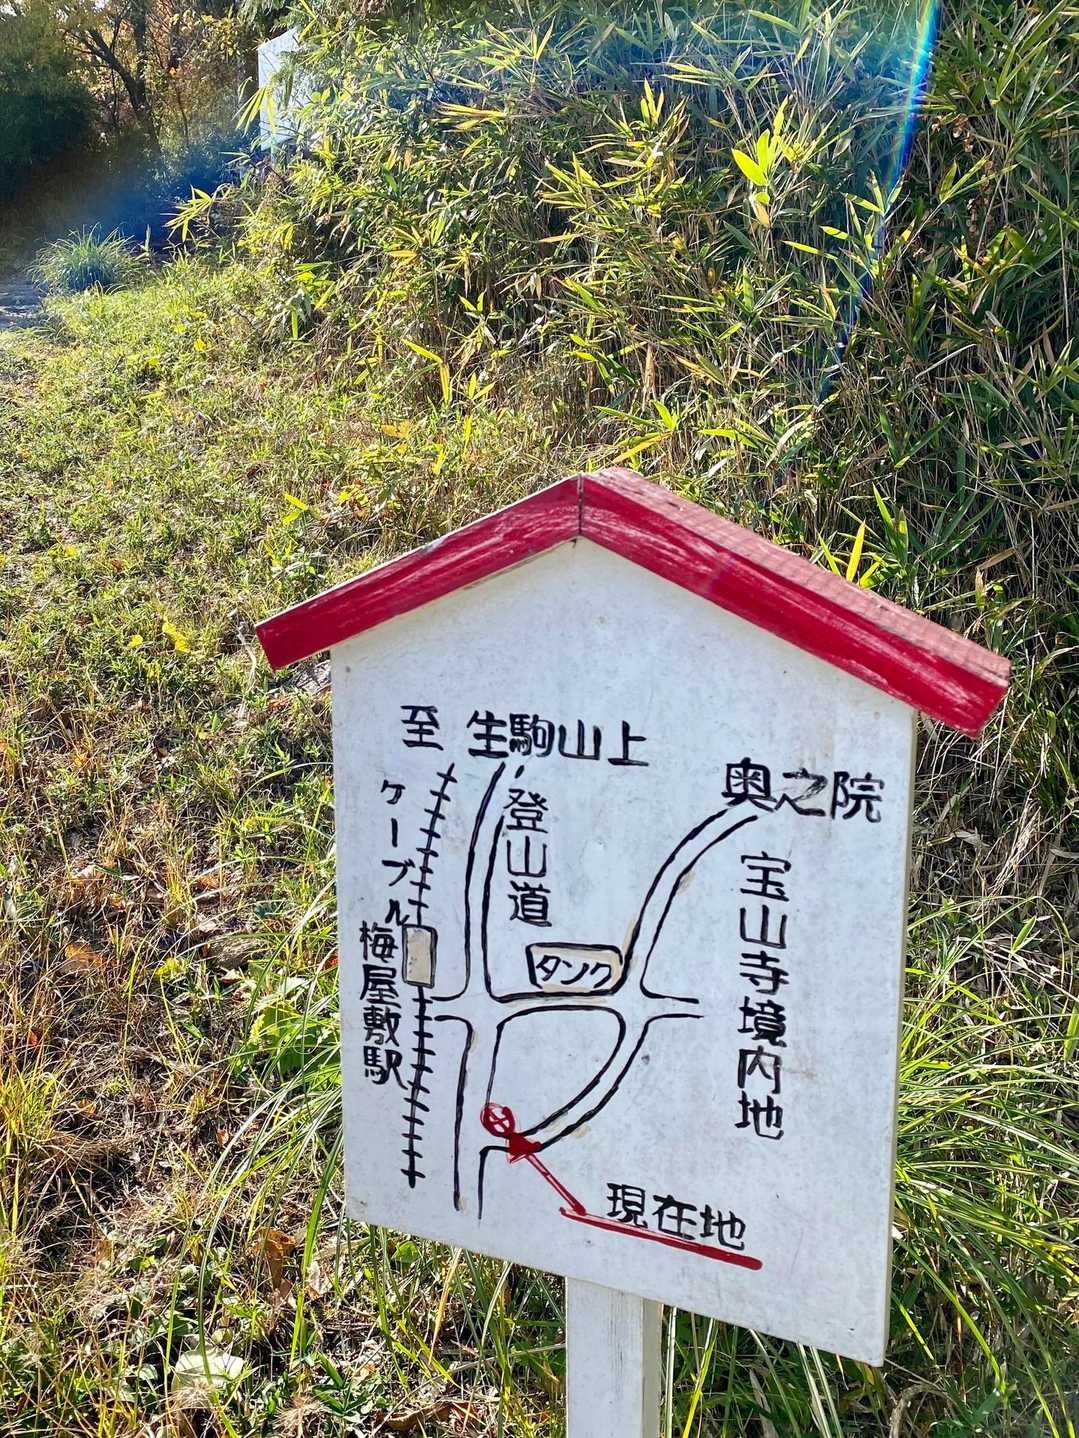 至 生駒山上
ケーブル
梅屋敷駅
登山道
タンク
奥之院
宝山寺境内地
現在地